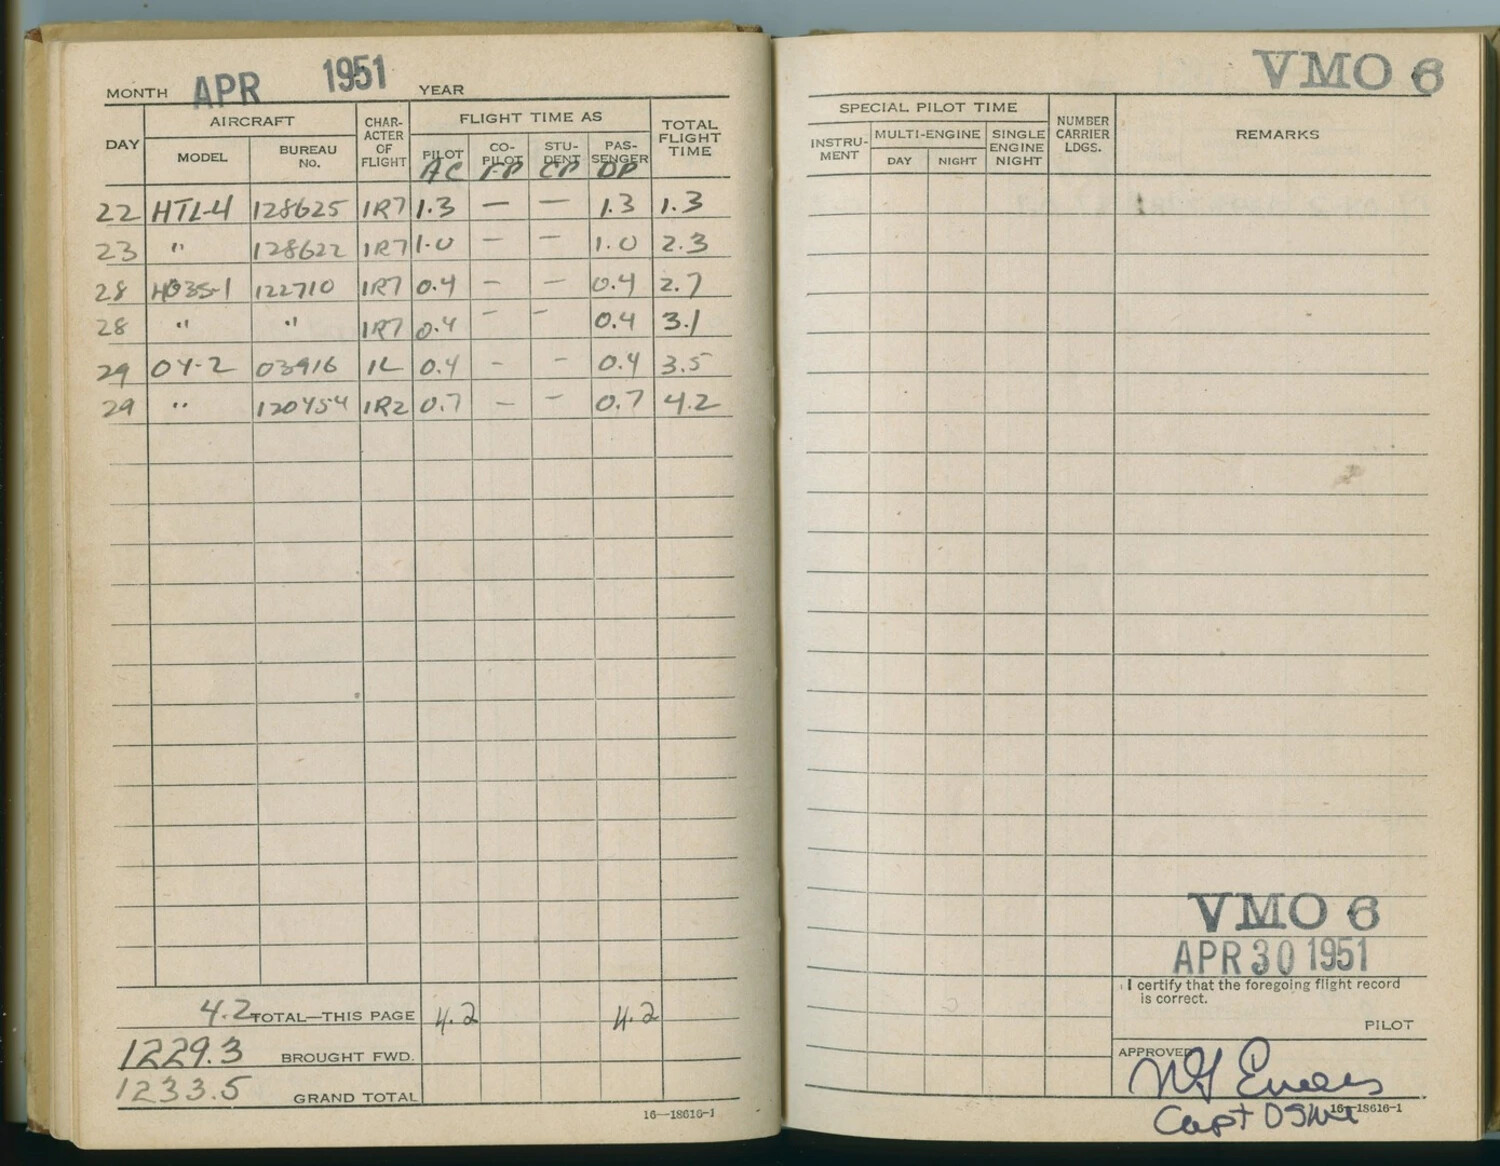 MONTH APR 1951 YEAR
DAY AIRCRAFT CHAR-ACTER OF FLIGHT FLIGHT TIME AS TOTAL FLIGHT TIME
MODEL BUREAU No. PILOT CO-PILOT STU-DENT PAS-SENGER
AC FP CP DP
22 HTL-4 128625 1R7 1.3 — — 1.3 1.3
23 " 128622 1R7 1.0 — — 1.0 2.3
28 HO3S-1 122710 1R7 0.4 — — 0.4 2.7
28 " " 1R7 0.4 — — 0.4 3.1
29 OY-2 03916 1L 0.4 - - 0.4 3.5
29 " 120454 1R2 0.7 - - 0.7 4.2
4.2 TOTAL—THIS PAGE 4.2 4.2
1229.3 BROUGHT FWD.
1233.5 GRAND TOTAL
16—18616-1
VMO 6
SPECIAL PILOT TIME NUMBER CARRIER LDGS. REMARKS
INSTRU-MENT MULTI-ENGINE SINGLE ENGINE NIGHT
DAY NIGHT
VMO 6
APR 30 1951
I certify that the foregoing flight record
is correct.
PILOT
APPROVED
Evans
16—18616-1
Capt